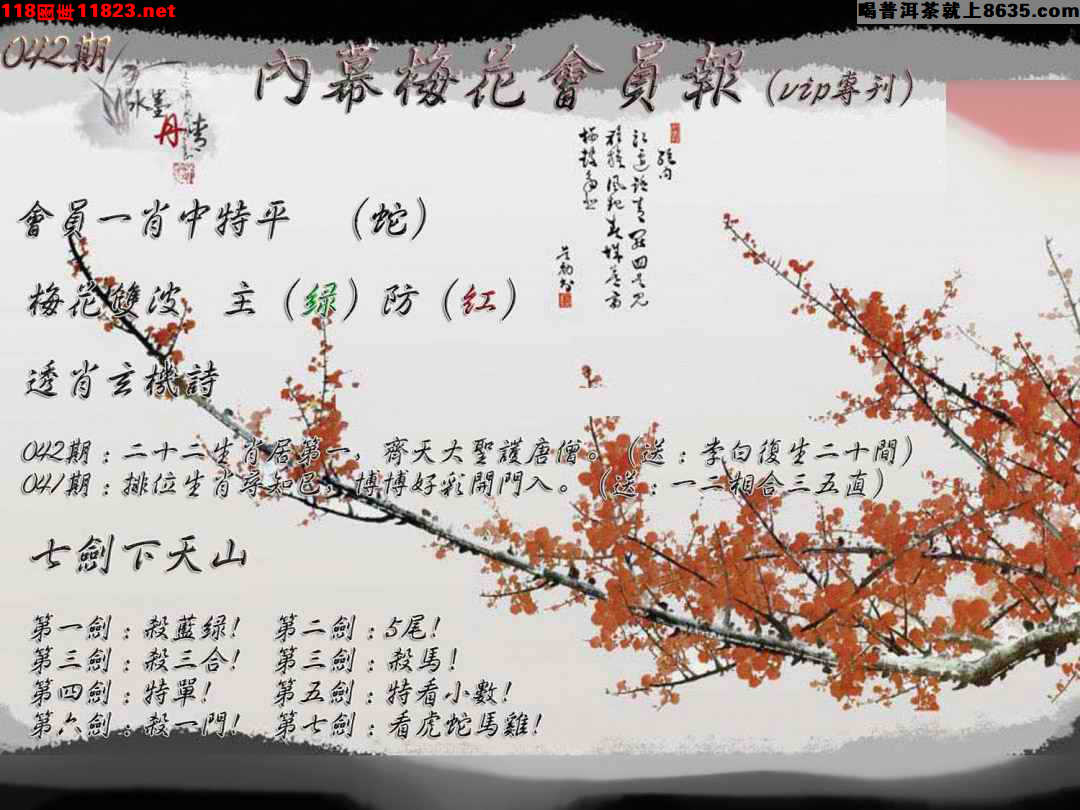 118图世11823.net
喝普洱茶就上8635.com
042期
水墨丹青
內幕梅花會員報(vip專刊)
會員一肖中特平 (蛇)
梅花雙波 主(绿)防(红)
透肖玄機詩
042期:二十二生肖居第一,齊天大聖護唐僧。(送:李白復生二十間)
041期:排位生肖穿知巳,博博好彩開門入。(送:一二相合三五直)
七劍下天山
第一劍:殺藍绿! 第二劍:5尾!
第三劍:殺三合! 第三劍:殺馬!
第四劍:特單! 第五劍:特看小數!
第六劍:殺一門! 第七劍:看虎蛇馬雞!